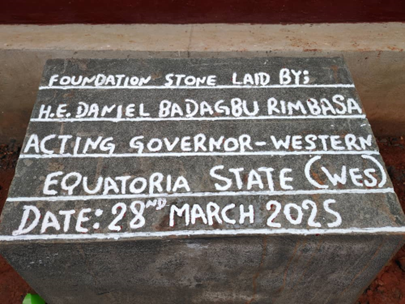 FOUNDATION STONE LAID BY:
H.E. DANIEL BADAGBU RIMBASA
ACTING GOVERNOR-WESTERN
EQUATORIA STATE (WES)
DATE: 28ND MARCH 2025